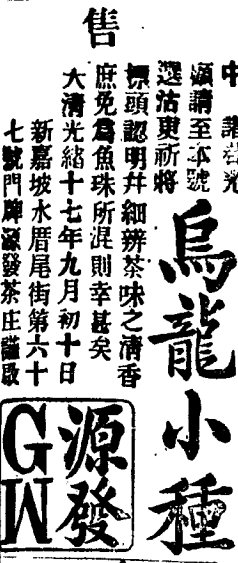 售
中 諸君光
顧請至本號
選沽東祈將
標頭認明并細辨茶味之清香
庶免爲魚珠所混則幸甚矣
大清光緒十七年九月初十日
新嘉坡水厝尾街第六十
七號門牌源發茶庄謹啟
烏龍小種
源發
GW